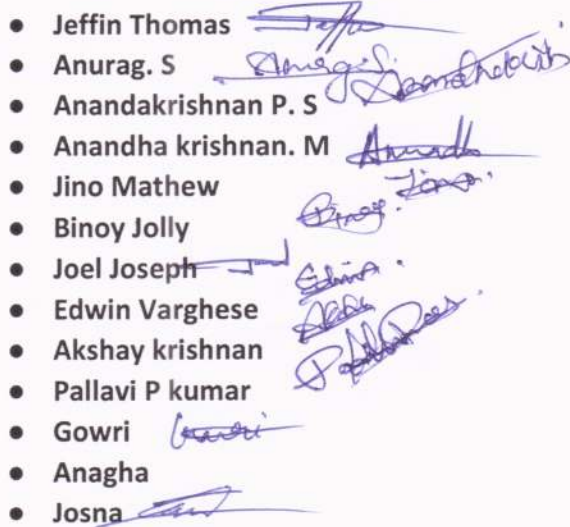 • Jeffin Thomas
• Anurag. S Anurag.S.
• Anandakrishnan P. S
• Anandha krishnan. M
• Jino Mathew
• Binoy Jolly Binoy.
• Joel Joseph
• Edwin Varghese Edwin.
• Akshay krishnan
• Pallavi P kumar
• Gowri Gowri
• Anagha
• Josna